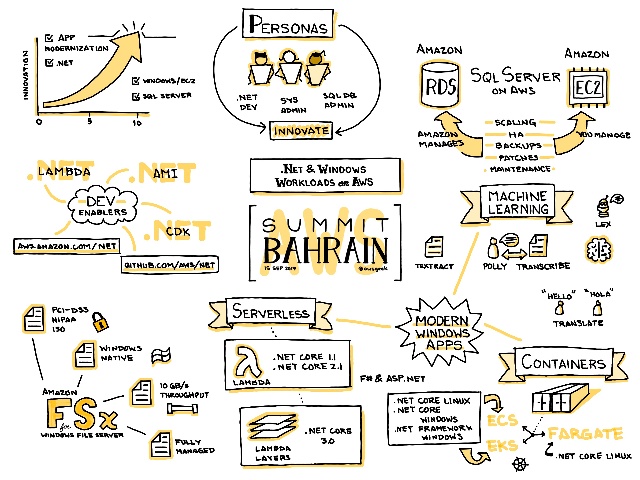 INNOVATION
APP
MODERNIZATION
.NET
WINDOWS/EC2
SQL SERVER
0
5
10
PERSONAS
.NET
DEV
SYS
ADMIN
SQL DB
ADMIN
INNOVATE
AMAZON
RDS
SQL SERVER
ON AWS
AMAZON
EC2
AMAZON
MANAGES
SCALING
HA
BACKUPS
PATCHES
MAINTENANCE
YOU MANAGE
.NET
LAMBDA
.NET
AMI
DEV
ENABLERS
.NET
CDK
AWS.AMAZON.COM/NET
GITHUB.COM/AWS/NET
.NET & WINDOWS
WORKLOADS ON AWS
AWS
SUMMIT
BAHRAIN
15 SEP 2019
MACHINE
LEARNING
LEX
TEXTRACT
POLLY
TRANSCRIBE
"HELLO"
"HOLA"
TRANSLATE
PCI-DSS
HIPAA
ISO
WINDOWS
NATIVE
10 GB/S
THROUGHPUT
FULLY
MANAGED
AMAZON
FSx
for
WINDOWS FILE SERVER
SERVERLESS
LAMBDA
.NET CORE 1.1
.NET CORE 2.1
LAMBDA
LAYERS
.NET CORE
3.0
F# & ASP.NET
MODERN
WINDOWS
APPS
CONTAINERS
.NET CORE LINUX
.NET CORE
WINDOWS
.NET FRAMEWORK
WINDOWS
ECS
EKS
FARGATE
.NET CORE LINUX